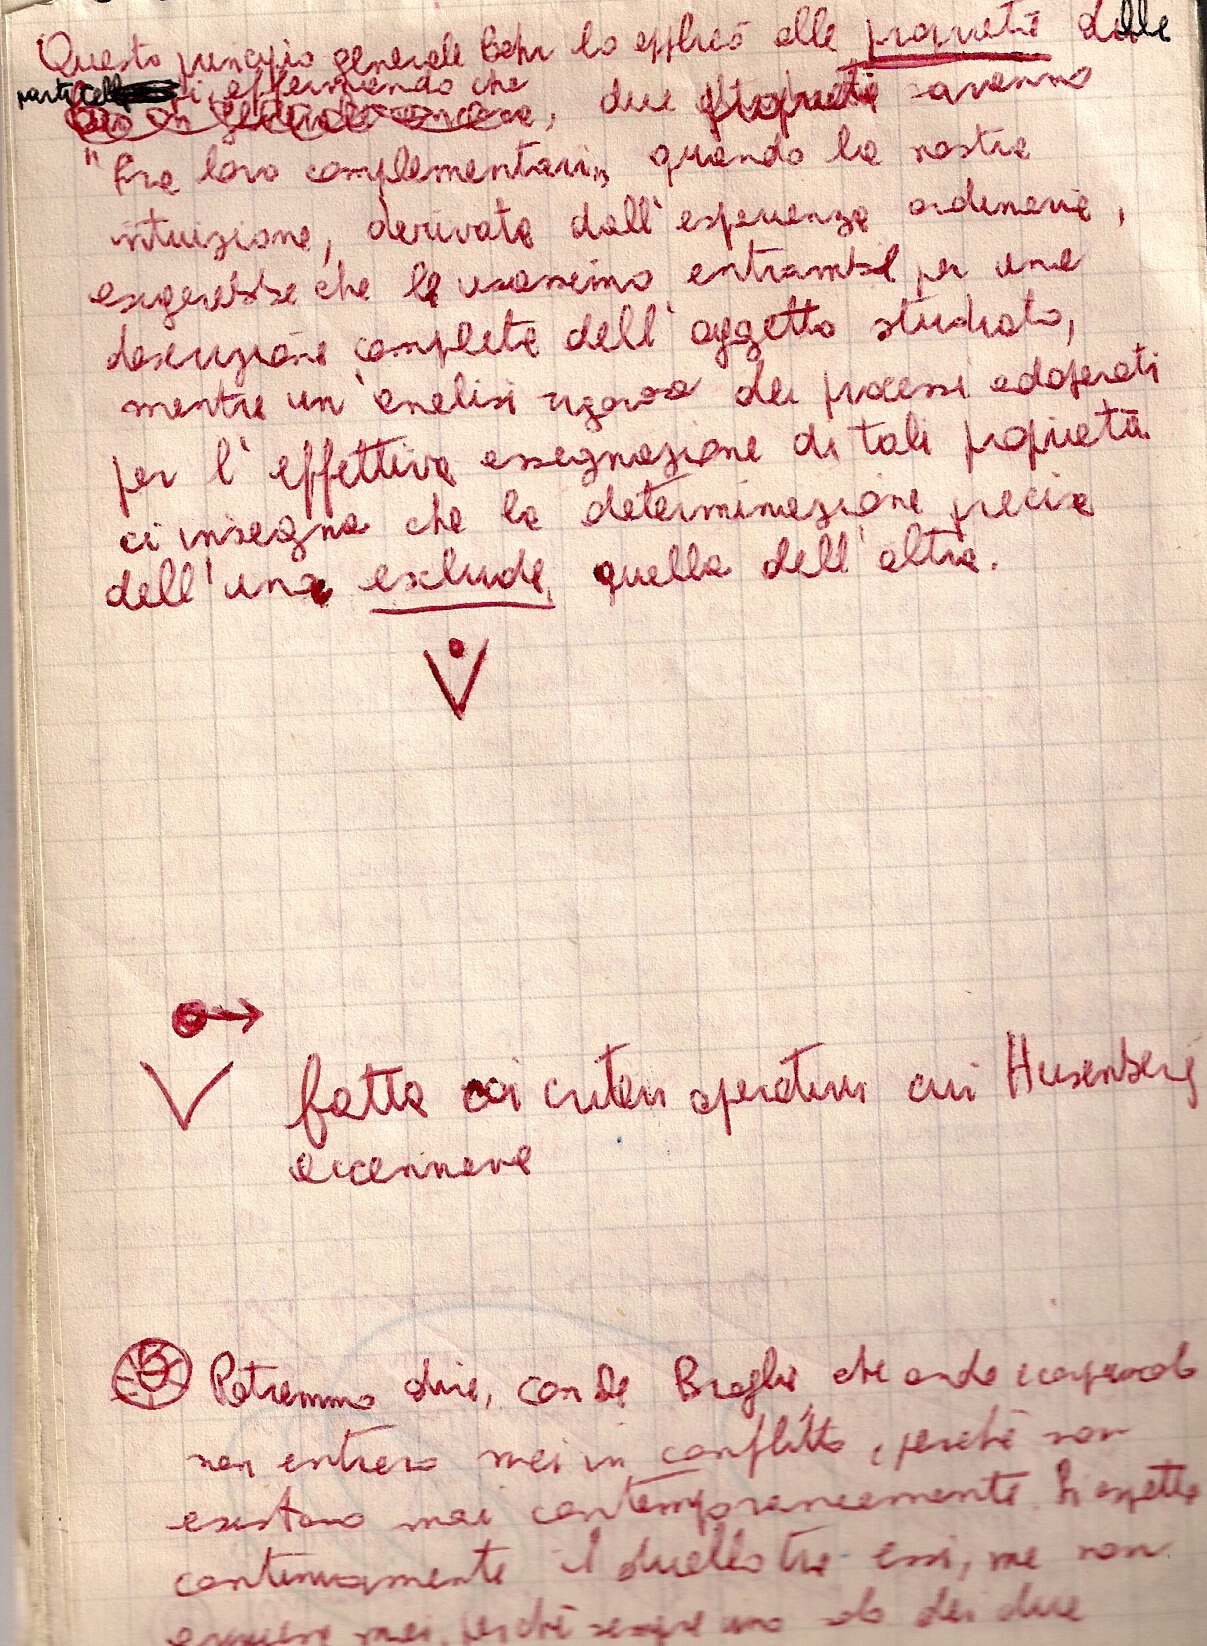 Questo principio generale Bohr lo applicò alle proprietà delle
particelle affermando che
due proprietà saranno
"fra loro complementari" quando la nostra
intuizione, derivata dall'esperienza ordinaria,
esigerebbe che le usassimo entrambe per una
descrizione completa dell'oggetto studiato,
mentre un'analisi rigorosa dei processi adoperati
per l'effettiva assegnazione di tali proprietà
ci insegna che la determinazione precisa
dell'una esclude quella dell'altra.
V
V fatta coi criteri operativi cui Heisenberg
accennava
Potremmo dire, con De Broglie che onda e corpuscolo
non entrano mai in conflitto, perché non
esistono mai contemporaneamente. Si aspetta
continuamente il duello tra essi, ma non
avviene mai, perché sempre uno solo dei due